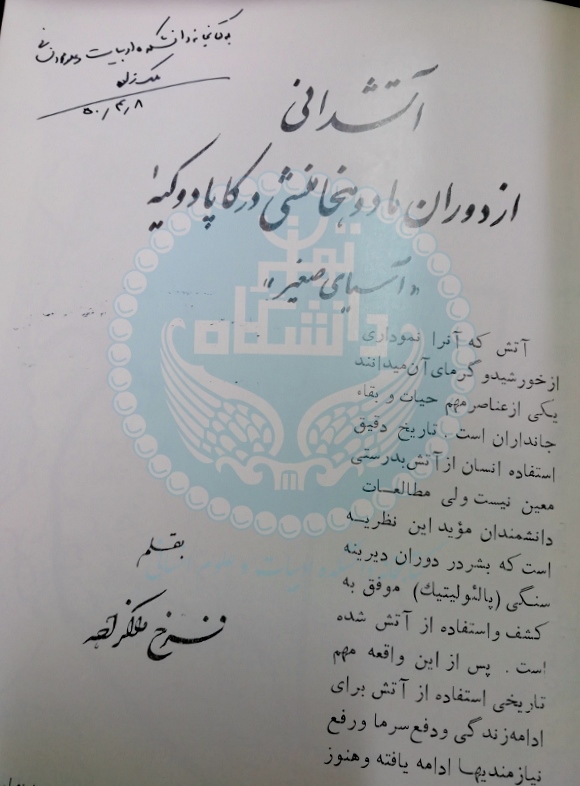 به کتابخانه دانشکده ادبیات و علوم انسانی
ملک زاده
۵۰/۴/۸
آتشدانی
از دوران ماد و هخامنشی در کاپادوکیه
«آسیای صغیر»
آتش که آنرا نموداری
از خورشید و گرمای آن میدانند
یکی از عناصر مهم حیات و بقاء
جانداران است . تاریخ دقیق
استفاده انسان از آتش بدرستی
معین نیست ولی مطالعات
دانشمندان مؤید این نظریه
است که بشر در دوران دیرینه
سنگی (پالئولیتیک) موفق به
کشف و استفاده از آتش شده
است . پس از این واقعه مهم
تاریخی استفاده از آتش برای
ادامه زندگی و دفع سرما و رفع
نیازمندیها ادامه یافته و هنوز
بقلم
فرخ ملک‌زاده
دانشگاه
تهران